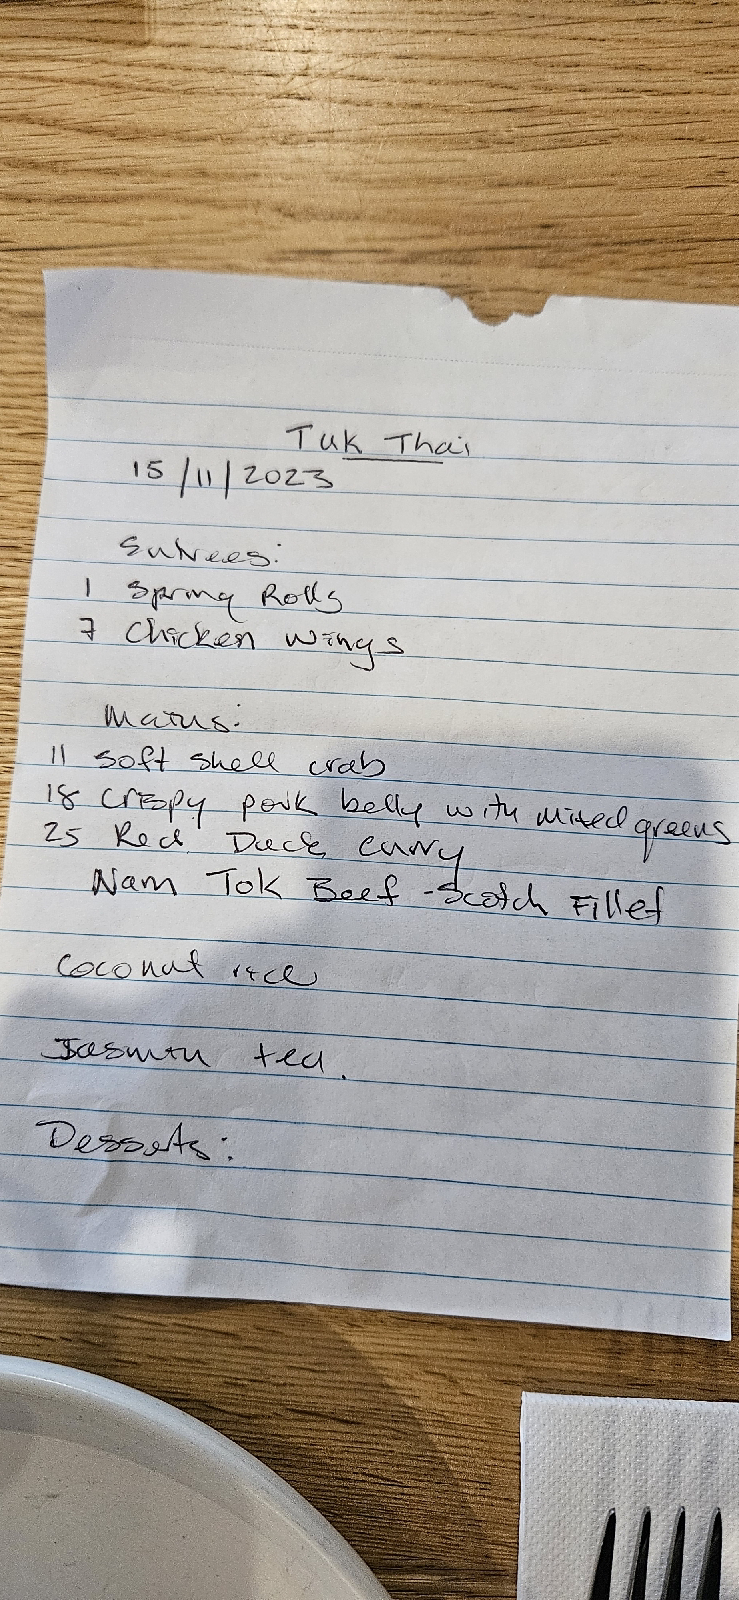 Tuk Thai
15/11/2023
Entrees:
1 Spring Rolls
7 Chicken wings
Mains:
11 Soft shell crab
18 Crispy pork belly with mixed greens
25 Red Duck curry
Nam Tok Beef - Scotch Fillet
Coconut rice
Jasmin tea.
Desserts: